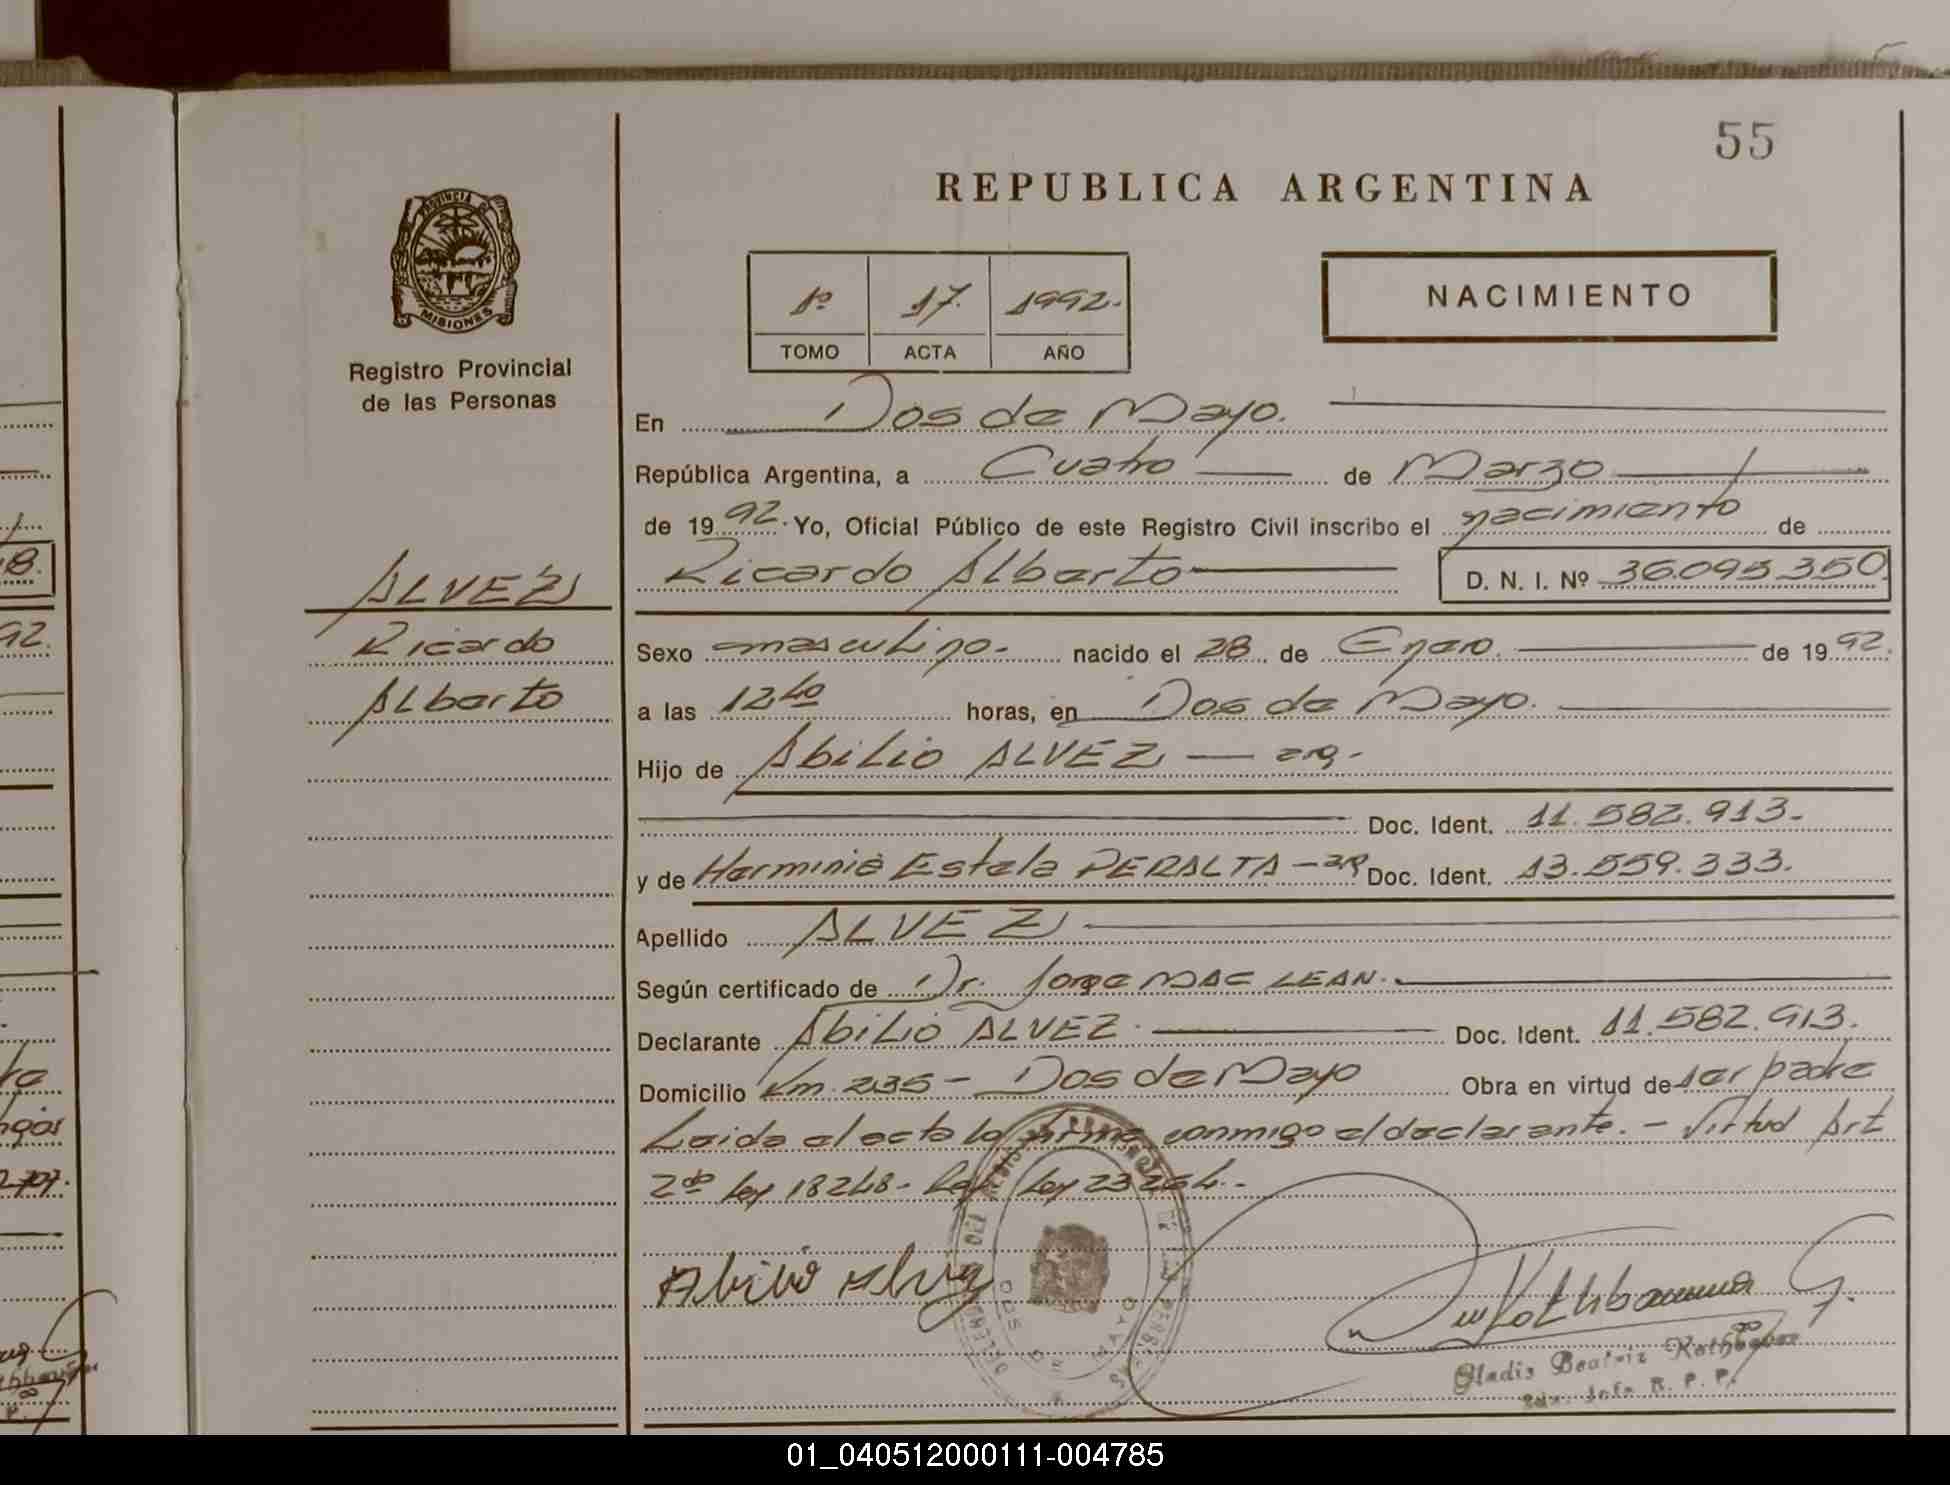 55
REPUBLICA ARGENTINA
PROVINCIA DE
MISIONES
Registro Provincial
de las Personas
1º 17. 1992.
TOMO ACTA AÑO
NACIMIENTO
En Dos de Mayo.
República Argentina, a Cuatro de Marzo
de 1992. Yo, Oficial Público de este Registro Civil inscribo el nacimiento de
Ricardo Alberto D. N. I. Nº 36.095.350
ALVEZ
Ricardo
Alberto
Sexo masculino. nacido el 28 de Enero. de 1992.
a las 12 40 horas, en Dos de Mayo.
Hijo de Abilio ALVEZ — arg.
Doc. Ident. 11.582.913.
y de Herminia Estela PERALTA — arg Doc. Ident. 13.559.333.
Apellido ALVEZ
Según certificado de Dr. Jorge MAC LEAN.
Declarante Abilio ALVEZ. Doc. Ident. 11.582.913.
Domicilio Km. 235 - Dos de Mayo Obra en virtud de ser padre
Leida el acta la firma conmigo el declarante. - Virtud Art
2do Ley 18248 - Ley 23264.-
Abilio Alvez
DOS DE MAYO
Gladis Beatriz Rothbauer
R. P. P.
01_040512000111-004785